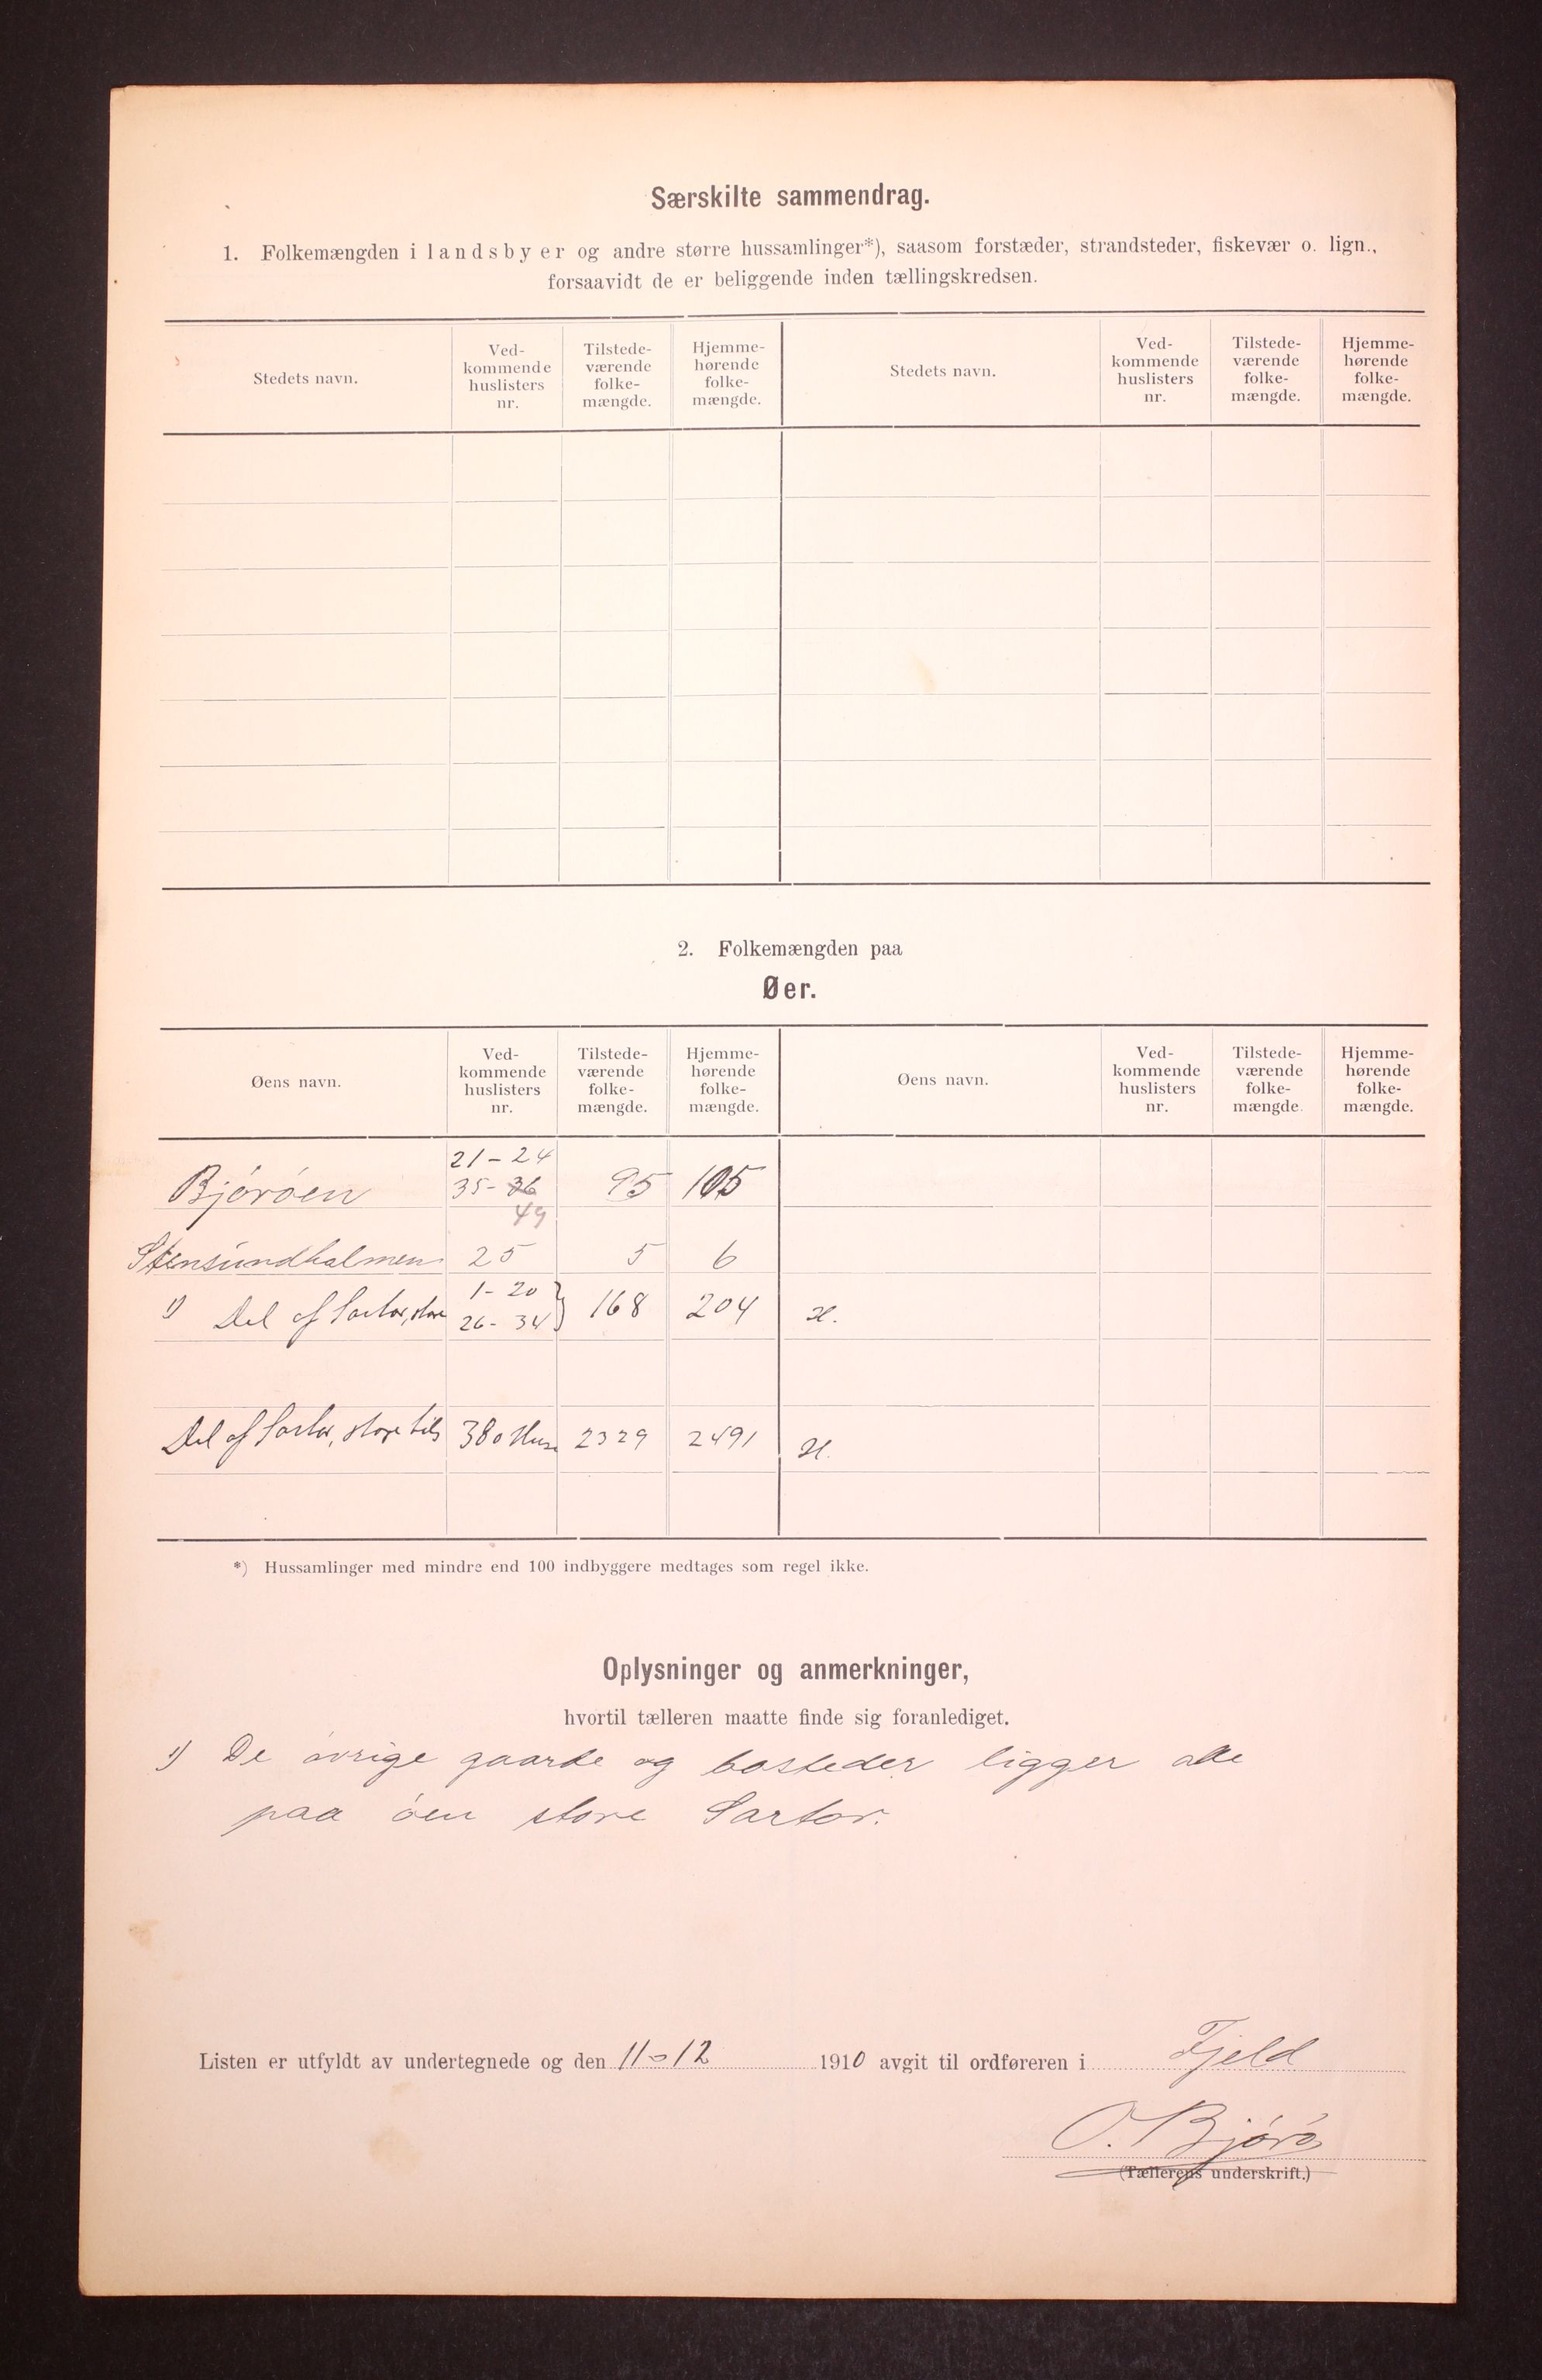 Særskilte sammendrag.
1. Folkemængden i landsbyer og andre større hussamlinger*), saasom forstæder, strandsteder, fiskevær o. lign.,
forsaavidt de er beliggende inden tællingskredsen.
Stedets navn. Ved-kommende huslisters nr. Tilstede-værende folke-mængde. Hjemme-hørende folke-mængde. Stedets navn. Ved-kommende huslisters nr. Tilstede-værende folke-mængde. Hjemme-hørende folke-mængde.
2. Folkemængden paa
Øer.
Øens navn. Ved-kommende huslisters nr. Tilstede-værende folke-mængde. Hjemme-hørende folke-mængde. Øens navn. Ved-kommende huslisters nr. Tilstede-værende folke-mængde. Hjemme-hørende folke-mængde.
21-24
Bjørøen 35-36 95 105
49
Stensundholmen 25 5 6
1-20
1) Del af Sartor, store 26-34 } 168 204
Del af Sartor, store tils 380 Huse 2329 2491
*) Hussamlinger med mindre end 100 indbyggere medtages som regel ikke.
Oplysninger og anmerkninger,
hvortil tælleren maatte finde sig foranlediget.
1) De øvrige gaarde og bosteder ligger alle
paa øen store Sartor.
Listen er utfyldt av undertegnede og den 11-12 1910 avgit til ordføreren i Fjeld
O. Bjørø
(Tællerens underskrift.)